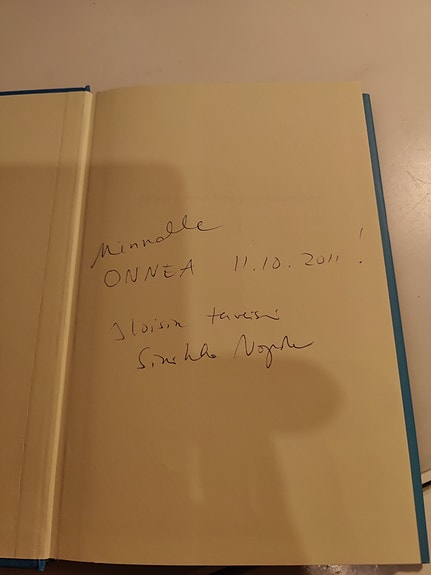 Minnalle
ONNEA 11.10.2011!
Iloisin terveisin
Sinikka Nopola